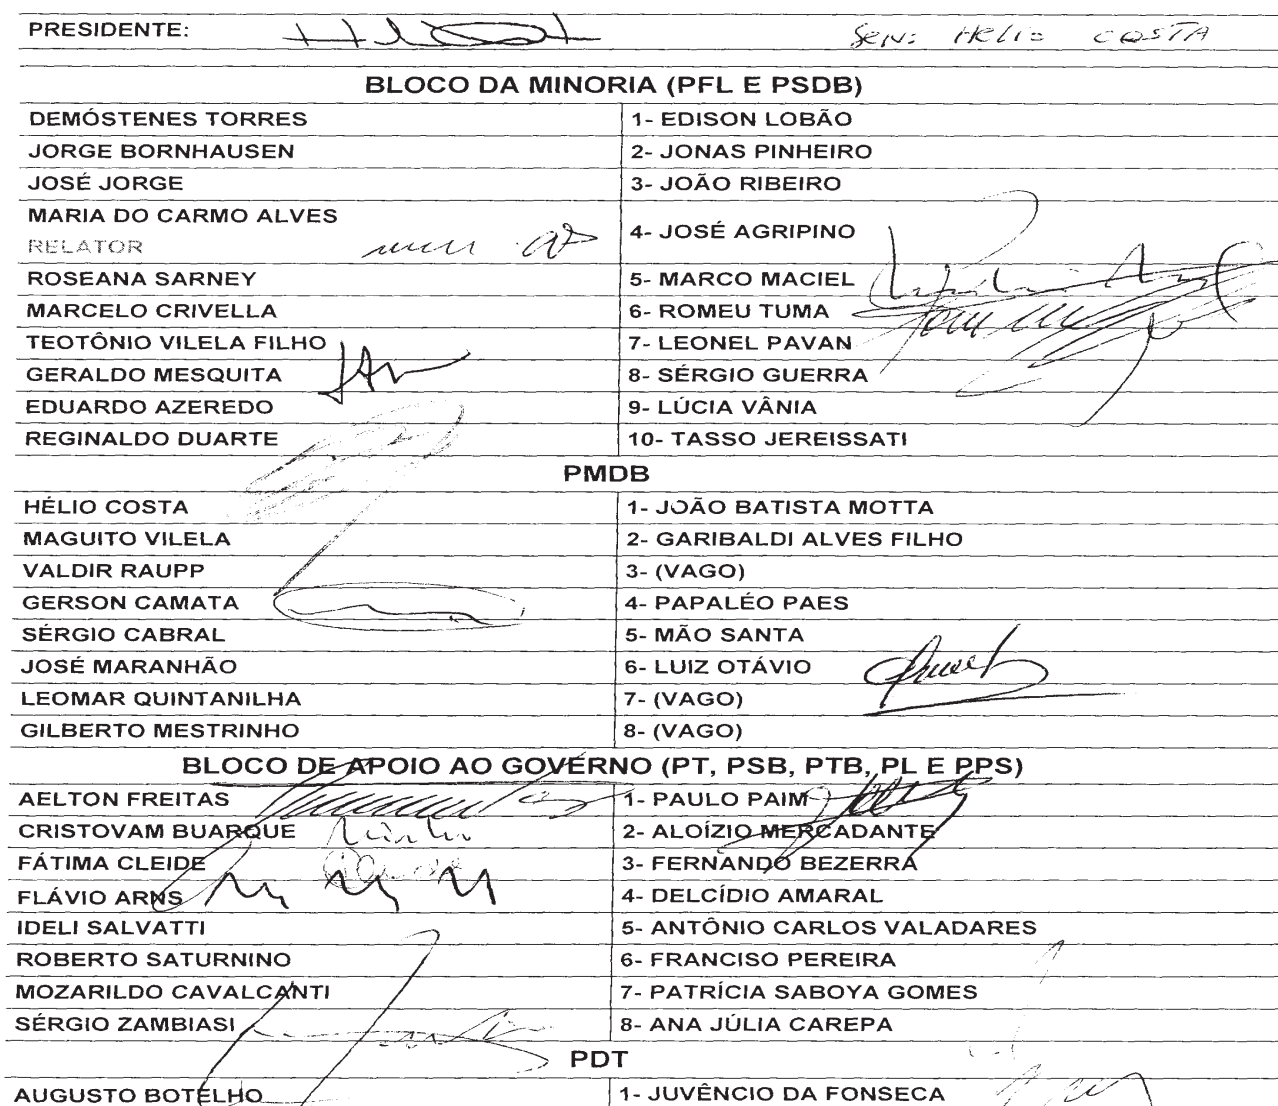 PRESIDENTE: Sen: HELIO COSTA
BLOCO DA MINORIA (PFL E PSDB)
DEMÓSTENES TORRES 1- EDISON LOBÃO
JORGE BORNHAUSEN 2- JONAS PINHEIRO
JOSÉ JORGE 3- JOÃO RIBEIRO
MARIA DO CARMO ALVES
RELATOR 4- JOSÉ AGRIPINO
ROSEANA SARNEY 5- MARCO MACIEL
MARCELO CRIVELLA 6- ROMEU TUMA
TEOTÔNIO VILELA FILHO 7- LEONEL PAVAN
GERALDO MESQUITA 8- SÉRGIO GUERRA
EDUARDO AZEREDO 9- LÚCIA VÂNIA
REGINALDO DUARTE 10- TASSO JEREISSATI
PMDB
HÉLIO COSTA 1- JOÃO BATISTA MOTTA
MAGUITO VILELA 2- GARIBALDI ALVES FILHO
VALDIR RAUPP 3- (VAGO)
GERSON CAMATA 4- PAPALÉO PAES
SÉRGIO CABRAL 5- MÃO SANTA
JOSÉ MARANHÃO 6- LUIZ OTÁVIO
LEOMAR QUINTANILHA 7- (VAGO)
GILBERTO MESTRINHO 8- (VAGO)
BLOCO DE APOIO AO GOVERNO (PT, PSB, PTB, PL E PPS)
AELTON FREITAS 1- PAULO PAIM
CRISTOVAM BUARQUE 2- ALOÍZIO MERCADANTE
FÁTIMA CLEIDE 3- FERNANDO BEZERRA
FLÁVIO ARNS 4- DELCÍDIO AMARAL
IDELI SALVATTI 5- ANTÔNIO CARLOS VALADARES
ROBERTO SATURNINO 6- FRANCISO PEREIRA
MOZARILDO CAVALCANTI 7- PATRÍCIA SABOYA GOMES
SÉRGIO ZAMBIASI 8- ANA JÚLIA CAREPA
PDT
AUGUSTO BOTELHO 1- JUVÊNCIO DA FONSECA